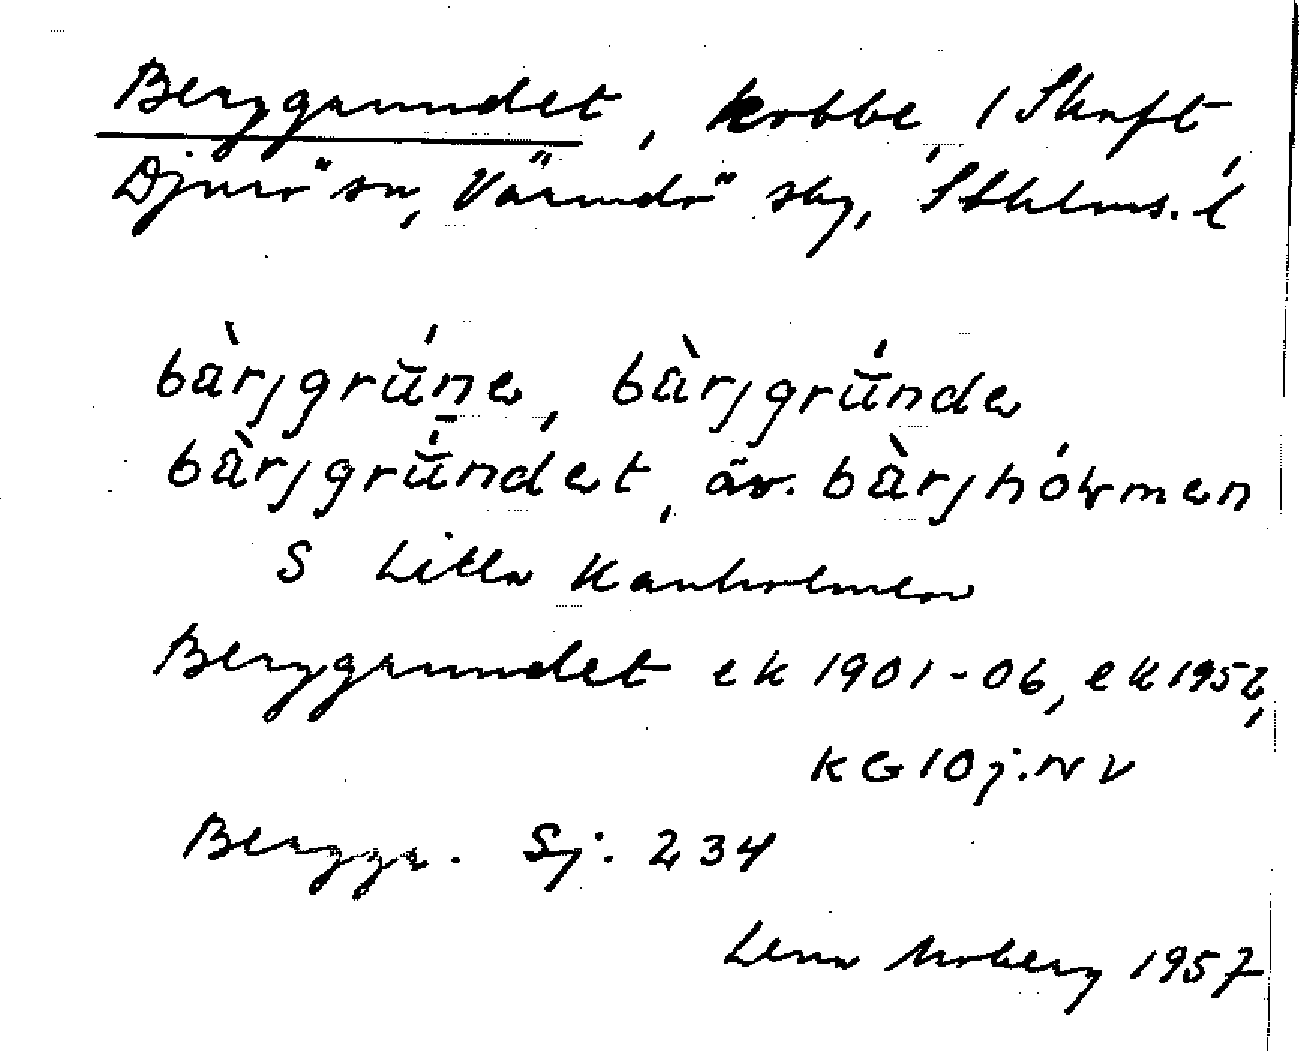 Berggrundet, kobbe, 1 Skaft,
Djurö sn, Värmdö sky, Sthlms. l
bàrjgrúne, bàrjgrúnde
bàrjgrúndet, äv. bàrjhólmen
S Lilla Kanholmen
Berggrundet ek 1901-06, ek 1952,
KG 10j. NV
Berggr. Sj. 234
Lena Moberg 1957